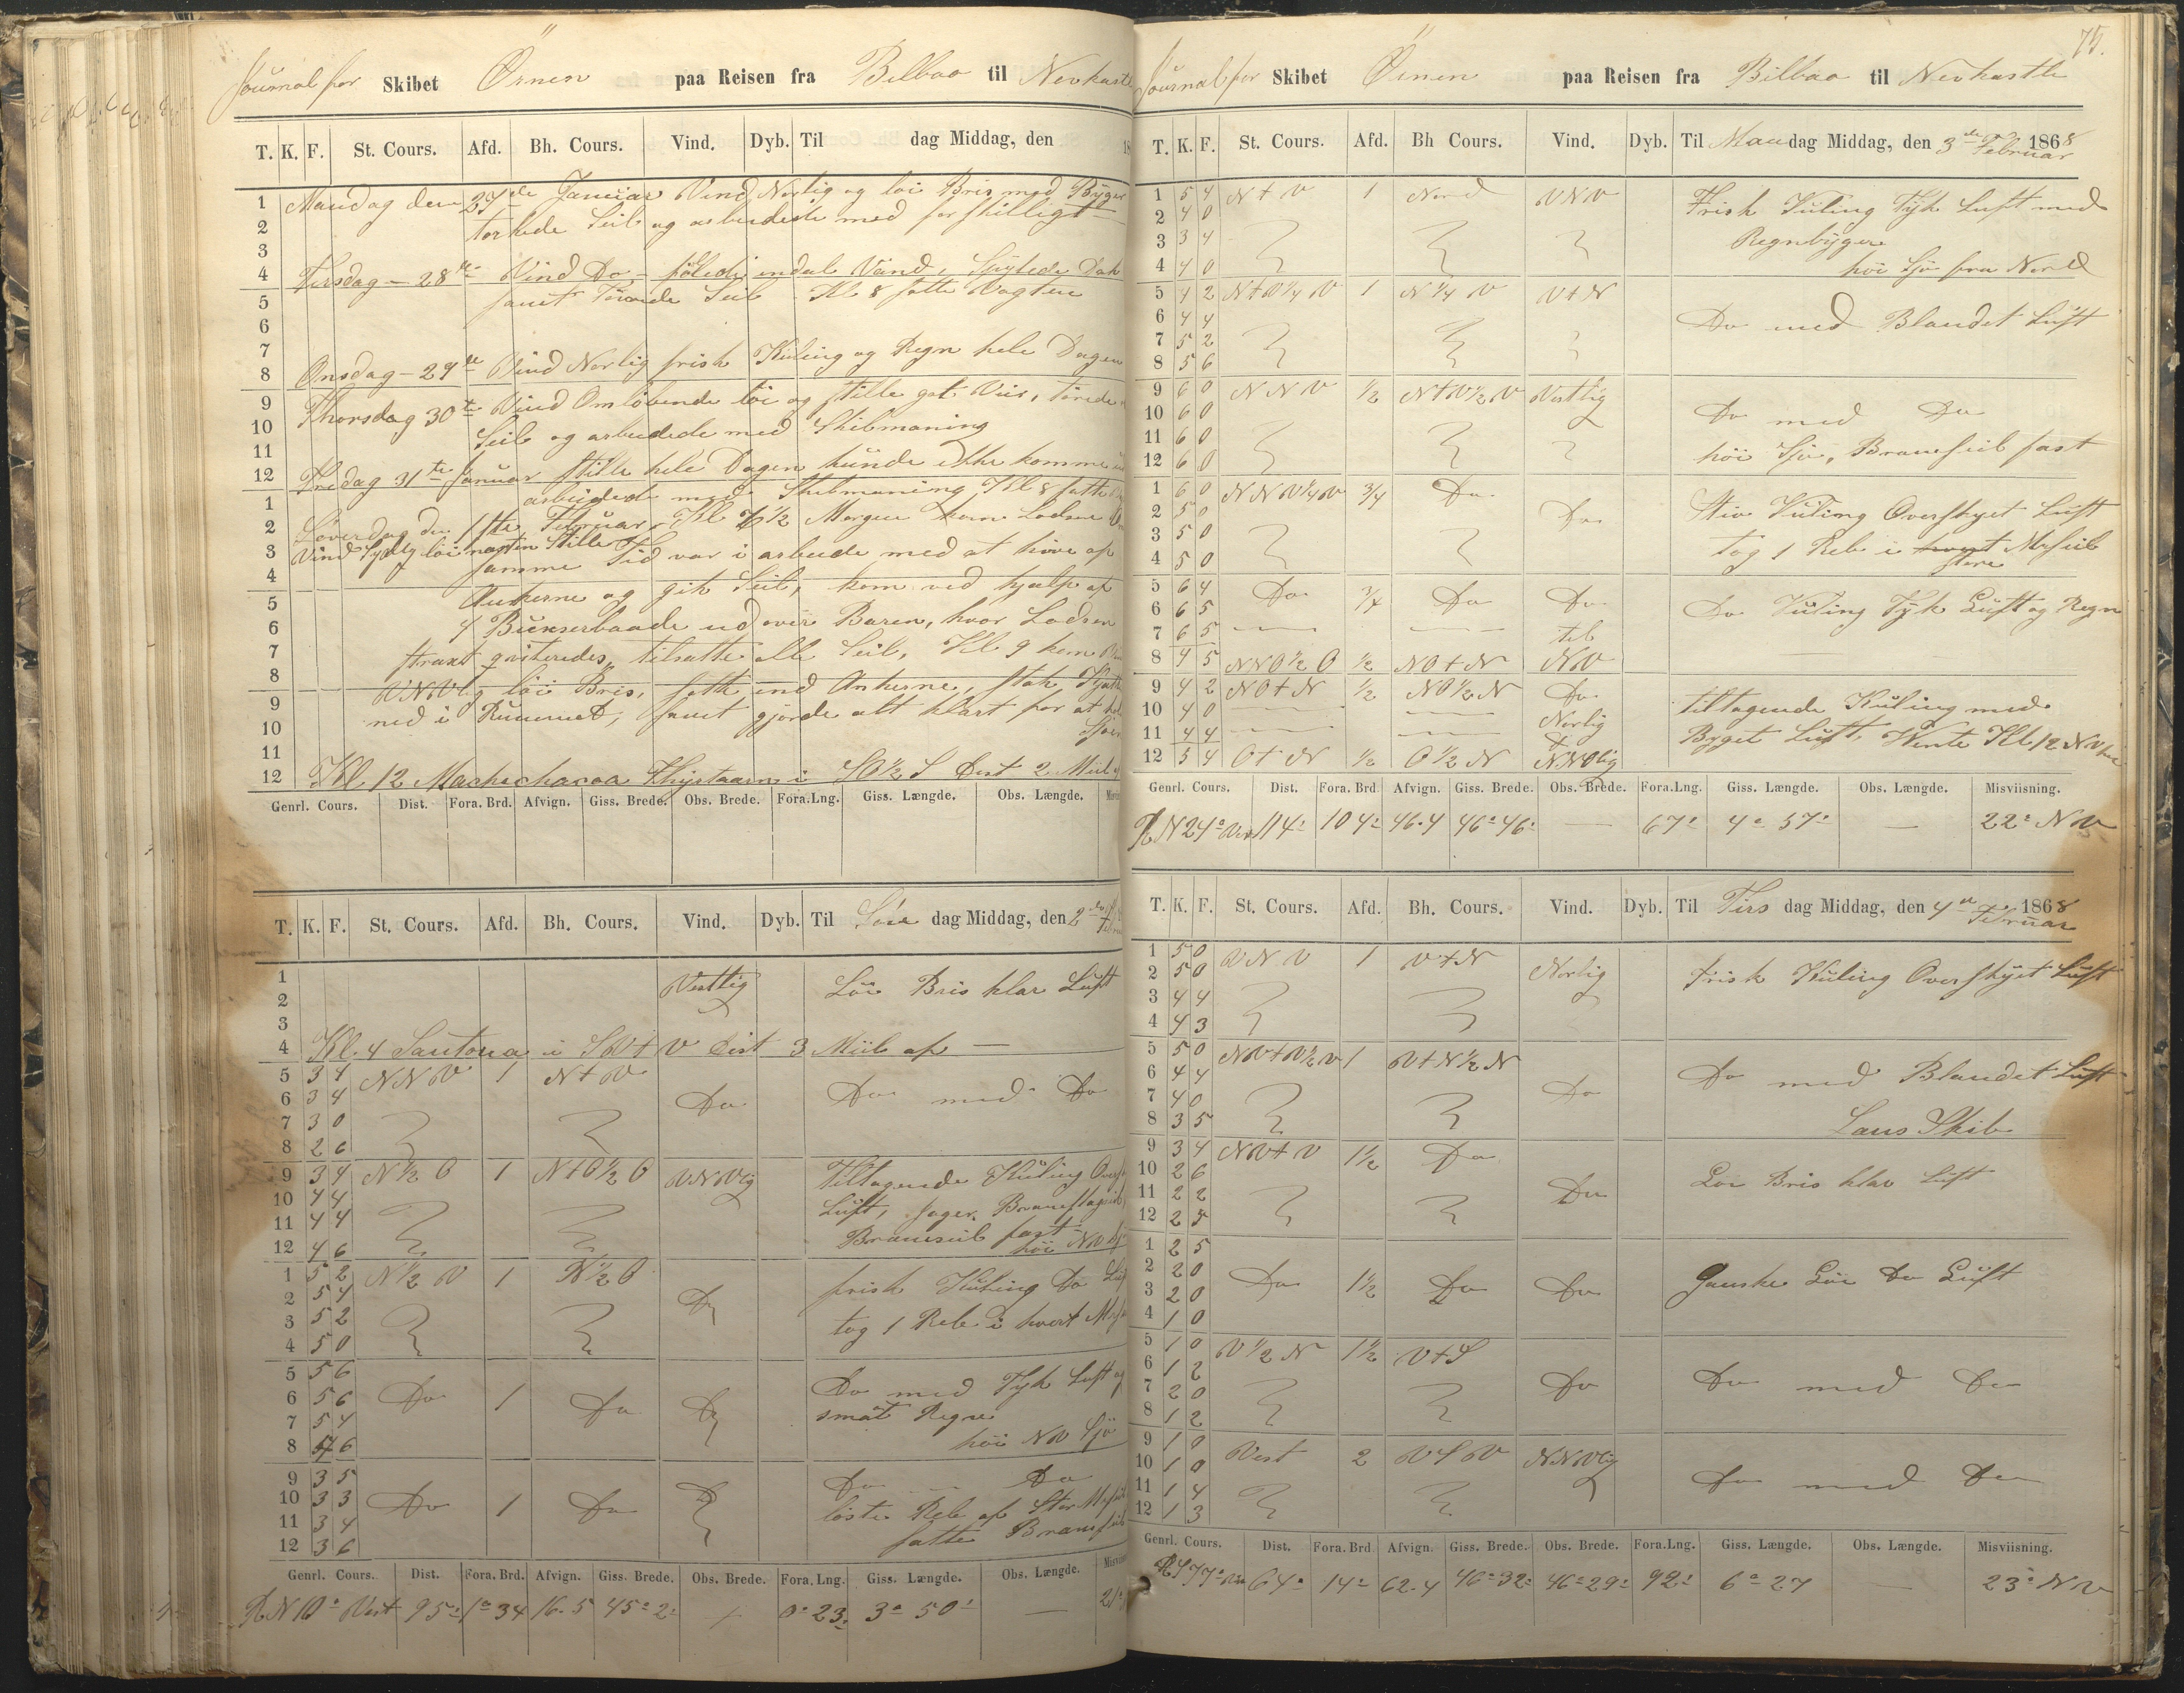 Journal for Skibet Örnen paa Reisen fra Bilbao til Nevkastle
T. K. F. St. Cours. Afd. Bh. Cours. Vind. Dyb. Til dag Middag, den 18
1 Mandag den 27de Januar Vind Norlig og löi Bris med Byger
2 torkede Seil og arbeidede med forskilligt
3
4 Tirsdag - 28de Vind Do - indel Vand, Spylede Dæk
5 samt Törrede Seil - Kl 8 satte Vagten
6
7
8 Onsdag - 29de Vind Norlig frisk Kuling og Regn hele Dagen
9 Thorsdag 30te Vind Omlöbende löi og stille got Veir, törede
10 Seil og arbeidede med Skibmaning
11
12 Fredag 31te Januar stille hele Dagen kunde ikke komme ud
1 arbeidede med Skibmaning Kl 8 satte
2 Löverdag den 1ste Februar, Kl 6½ Morgen kom Lodsen
3 Vind Sydlig löi næsten Stille samme Tid var i arbeide med at hive op
4
5 Ankerne og gik Seil, kom ved hjælp af
6 4 Buxserbaade ud over Baren, hvor Lodsen
7 straxt qviteredes, tilsatte alle Seil, Kl 9 kom
8 VNVlig löi Bris, satte ind Ankerne, stak Kjætting
9 ned i Rummet, samt gjorde alt klart for at
10 Sjöen
11
12 Kl. 12 Machichacoa Fhyrtaarn i SO½S Dist 2 Miil
Genrl. Cours. Dist. Fora. Brd. Afvign. Giss. Brede. Obs. Brede. Fora.Lng. Giss. Længde. Obs. Længde.
T. K. F. St. Cours. Afd. Bh. Cours. Vind. Dyb. Til Sön dag Middag, den 2den
1 Vestlig Löi Bris klar Luft
2
3
4 Kl. 4 Santona i SV+V Dist 3 Miil af —
5 3 4 NNV 1 N+V
6 3 4 Do Do med Do
7 3 0
8 2 6
9 3 4 N½O 1 N+O½O VNVlig Tiltagende Kuling
10 4 4 Luft, Jager, Bramstagseil,
11 4 4 Bramseil fast
12 4 6 höi NV
1 5 2 N½V 1 N½O frisk Kuling Do
2 5 4 Do
3 5 2 tog 1 Reb i hvert
4 5 0
5 5 6 Do med Tyk Luft og
6 5 6 Do 1 Do Do smaat Regn
7 5 4 höi NV Sjö
8 4 6
9 3 5 Do - Do
10 3 3 Do 1 Do Do löste Reb af Stor
11 3 4 satte Bramseil
12 3 6
Genrl. Cours. Dist. Fora. Brd. Afvign. Giss. Brede. Obs. Brede. Fora. Lng. Giss. Længde. Obs. Længde.
R N 10° Vest 95' 1° 34 16.5 45° 2' 0° 23' 3° 50' —
75.
Journal for Skibet Örnen paa Reisen fra Bilbao til Nevkastle
T. K. F. St. Cours. Afd. Bh Cours. Vind. Dyb. Til Mandag Middag, den 3de Februar 1868
1 5 4 N+V 1 Nord VNV Frisk Kuling Tyk Luft med
2 4 0 Regnbyger
3 3 4
4 4 0 höi Sjö fra Nord
5 4 2 N+V¼V 1 N¼V V+N
6 4 4 Do med Blandet Luft
7 5 2
8 5 6
9 6 0 NNV ½ N+V½V Vestlig
10 6 0 Do med Do
11 6 0 höi Sjö, Bramseil fast
12 6 0
1 6 0 NNV¼V ¾ Do
2 5 0 Do Stiv Kuling Overskyet Luft
3 5 0 tog 1 Reb i hvert Mrseil
4 5 0 store
5 6 4 Do ¾ Do Do
6 6 5 Do Kuling Tyk Luft og Regn
7 6 5 til
8 4 5 NNO½O ½ NO+N NV
9 4 2 NO+N ½ NO½N Do tiltagende Kuling med
10 4 0 Norlig
11 4 4 Byget Luft, Vente Kl 12 NV
12 5 4 O+N ½ O½N NNOlig
Genrl. Cours. Dist. Fora. Brd Afvign. Giss. Brede. Obs. Brede. Fora.Lng. Giss. Længde. Obs. Længde. Misviisning.
R N 24° Vest 114' 104' 46.4 46° 46' — 67' 4° 57' — 22° NV
T. K. F. St. Cours. Afd. Bh. Cours. Vind. Dyb. Til Tirs dag Middag, den 4de Februar 1868
1 5 0 VNV 1 V+N
2 5 0 Norlig Frisk Kuling Overskyet Luft
3 4 4
4 4 3
5 5 0 NV+V½V 1 V+N½N
6 4 4 Do Do med Blandet Luft
7 4 0
8 3 5 Læns Skib
9 3 4 NV+V 1½ Do
10 2 6 Do Löi Bris klar Luft
11 2 2
12 2 5
1 2 5
2 2 0
3 2 0 Do 1½ Do Do Ganske Löi Do Luft
4 1 0
5 1 0 V½N 1½ V+S
6 1 2 Do Do med Do
7 2 0
8 1 2
9 1 0 Vest 2 VSV NNVlig
10 1 0 Do med Do
11 1 4
12 1 3
Genrl. Cours. Dist. Fora. Brd Afvign. Giss. Brede. Obs. Brede. Fora.Lng. Giss. Længde. Obs. Længde. Misviisning.
R S 77° Ves 64' 14' 62.4 46° 32' 46° 29' 92' 6° 27 — 23° NV